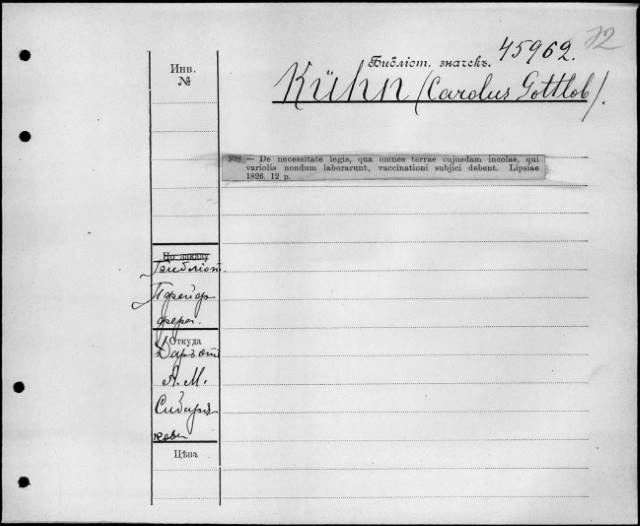 Библіот. значекъ. 45962.
Инв.
№
Kühn (Carolus Gottlob).
— De necessitate legis, qua omnes terrae cujusdam incolae, qui
variolis nondum laborarunt, vaccinationi subjici debent. Lipsiae
1826. 12 p.
По заказу
Библіот.
Пфейф
фера.
Откуда
Даръ отъ
А. М.
Сибиря
кова
Цѣна